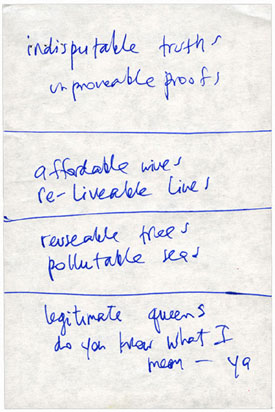 indisputable truths
unproveable proofs
affordable wives
re-liveable lives
reuseable trees
pollutable seas
legitimate queens
do you know what I
mean – ya